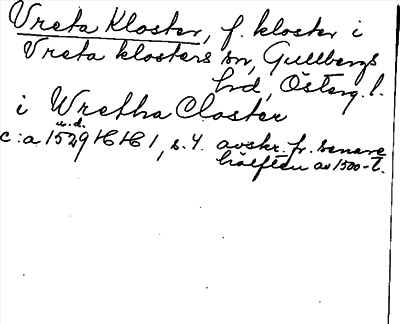 Vreta Kloster, f. kloster i
Vreta klosters sn, Gullbergs
hrd, Österg. l.
i Wretha Closter
u.d.
c:a 1529 HH 1, s. 4. avskr. fr. senare
hälften av 1500-t.